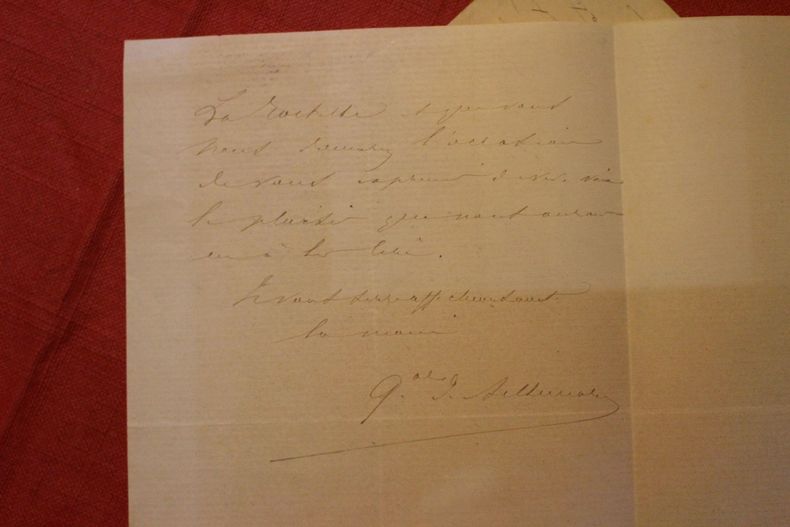 La Rochelle et que vous
nous donniez l'occasion
de vous exprimer de vive voix
le plaisir que nous avons
eu à la lire.
Je vous serre affectueusement
la main
Gal de